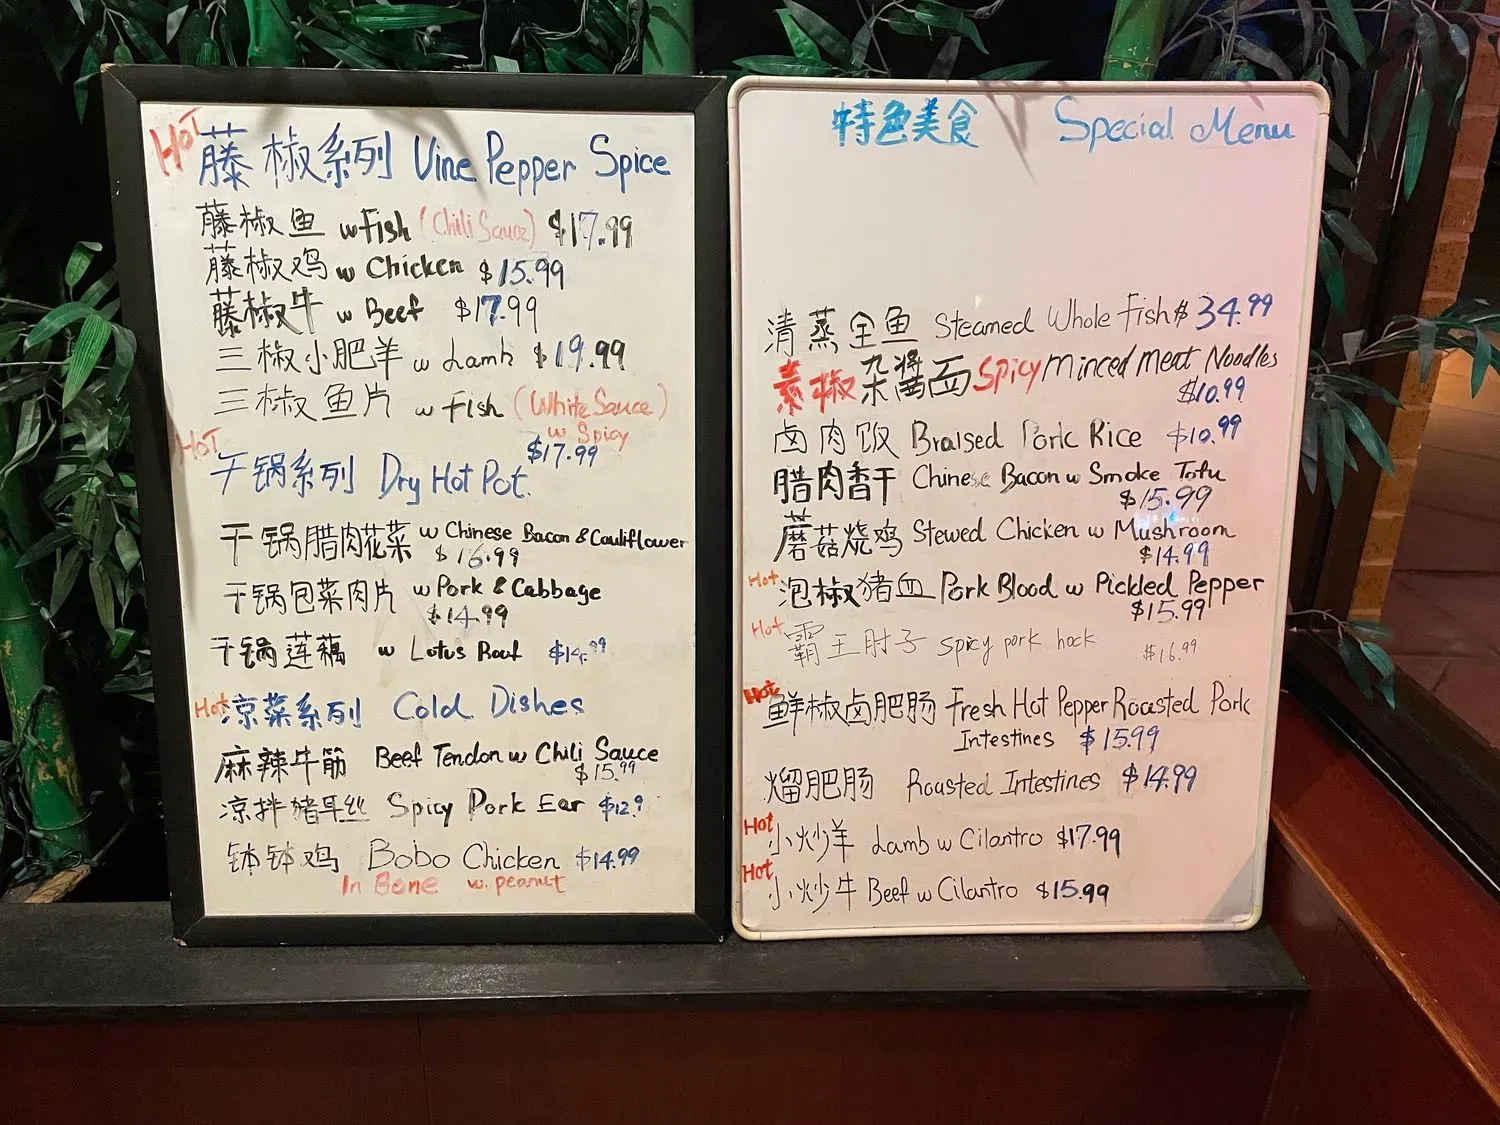 HOT 藤椒系列 Vine Pepper Spice
藤椒鱼 w Fish (Chili Sauce) $17.99
藤椒鸡 w Chicken $15.99
藤椒牛 w Beef $17.99
三椒小肥羊 w Lamb $19.99
三椒鱼片 w Fish (White Sauce)
w Spicy
$17.99
HOT
干锅系列 Dry Hot Pot.
干锅腊肉花菜 w Chinese Bacon & Cauliflower
$16.99
干锅包菜肉片 w Pork & Cabbage
$14.99
干锅莲藕 w Lotus Root $14.99
Hot 凉菜系列 Cold Dishes
麻辣牛筋 Beef Tendon w Chili Sauce
$15.99
凉拌猪耳丝 Spicy Pork Ear $12.9
钵钵鸡 Bobo Chicken $14.99
In Bone w. peanut
特色美食 Special Menu
清蒸全鱼 Steamed Whole Fish $34.99
素椒杂酱面 Spicy Minced Meat Noodles
$10.99
卤肉饭 Braised Pork Rice $10.99
腊肉香干 Chinese Bacon w Smoke Tofu
$15.99
蘑菇烧鸡 Stewed Chicken w Mushroom
$14.99
Hot 泡椒猪血 Pork Blood w Pickled Pepper
$15.99
Hot 霸王肘子 Spicy pork hock $16.99
Hot 鲜椒卤肥肠 Fresh Hot Pepper Roasted Pork
Intestines $15.99
熘肥肠 Roasted Intestines $14.99
Hot 小炒羊 Lamb w Cilantro $17.99
Hot 小炒牛 Beef w Cilantro $15.99